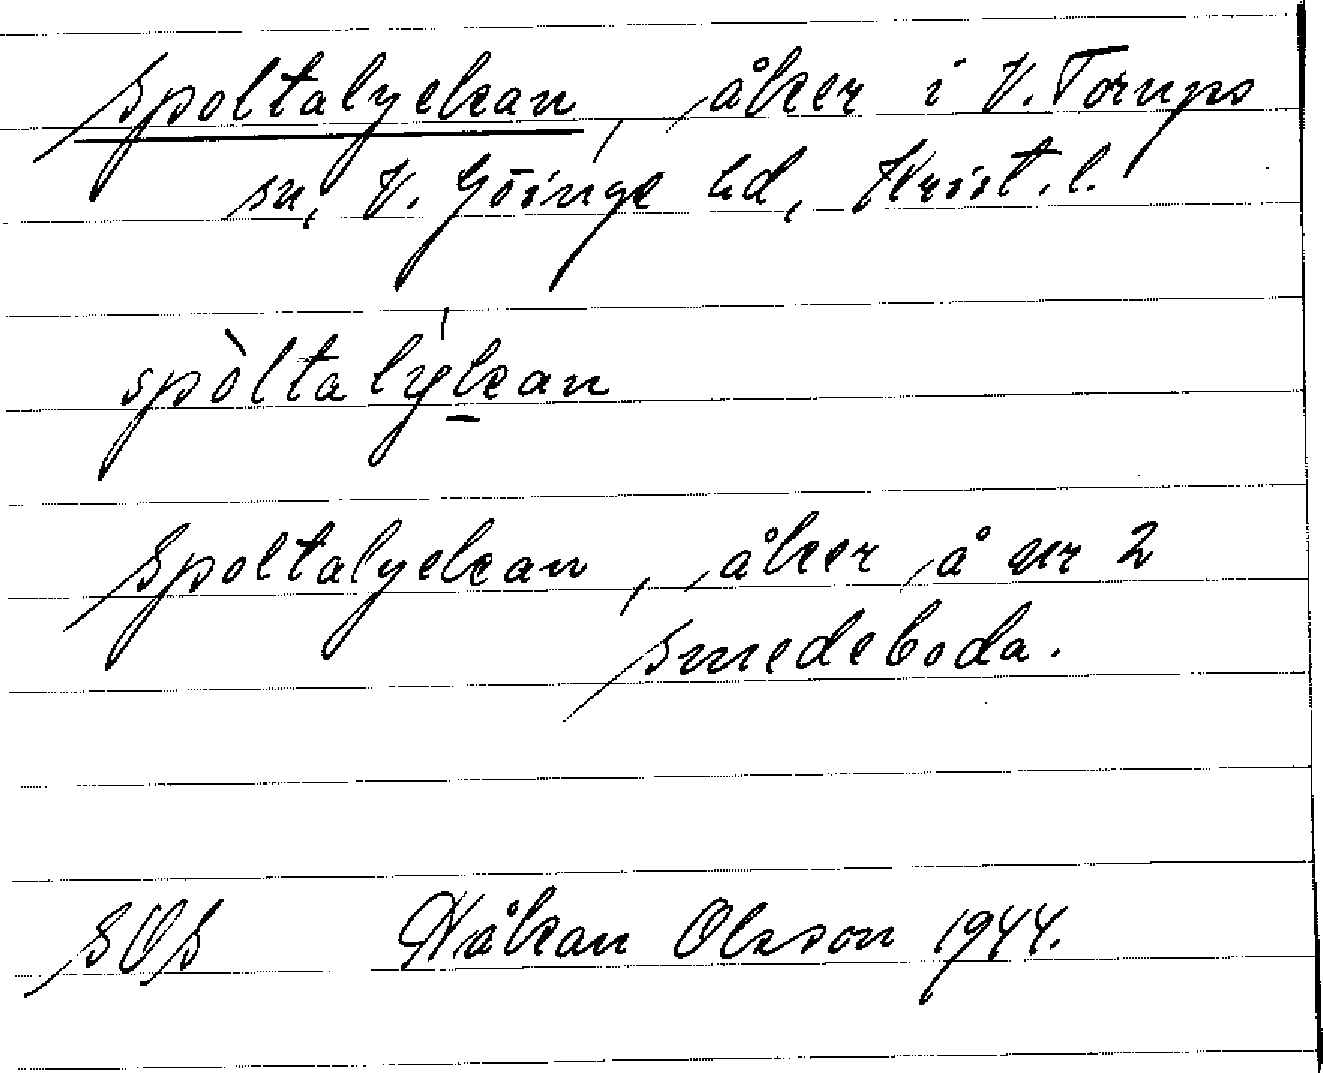 Spoltalyckan, åker i V. Torups
sn, V. Göinge hd, Krist. l.
spòltalýkan
Spoltalyckan, åker å nr 2
Smedeboda.
SOS Håkan Olsson 1944.